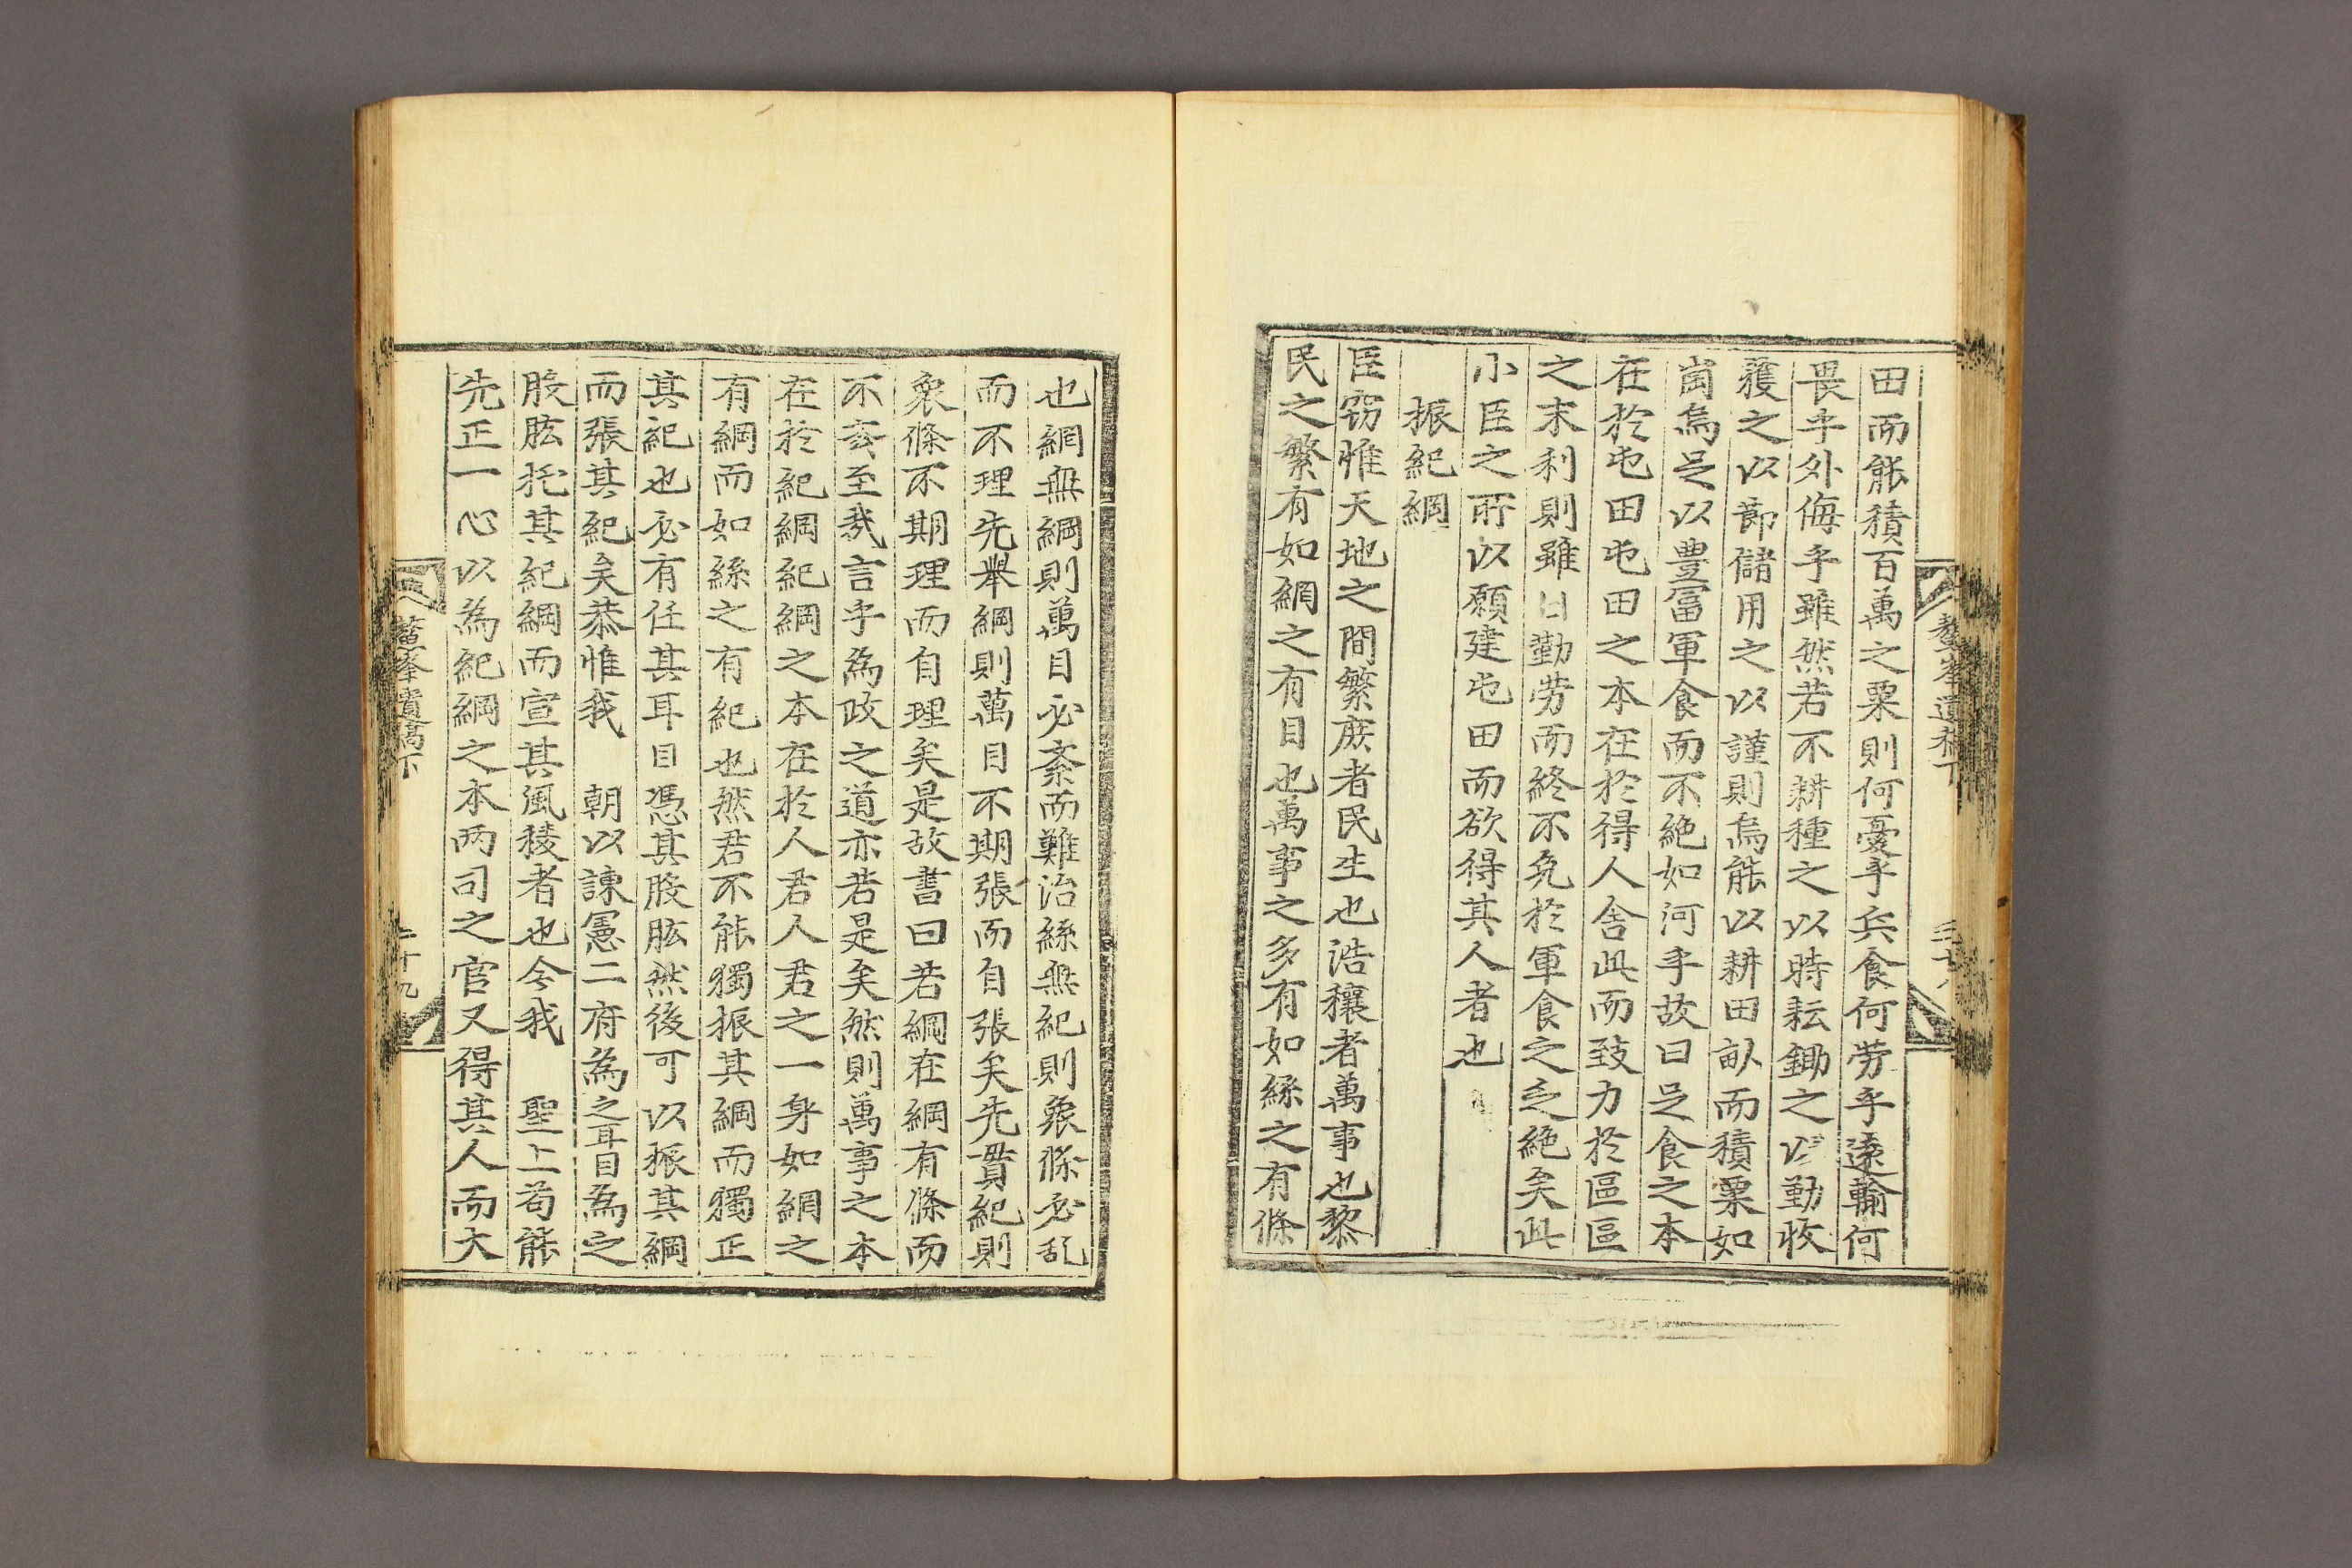 田而能積百萬之粟則何憂乎兵食何勞乎遠輸何
畏乎外侮乎雖然若不耕種之以時耘鋤之以勤收
穫之以節儲用之以謹則烏能以耕田畝而積粟如
崗烏足以豊富軍食而不絶如河乎故曰足食之本
在於屯田屯田之本在於得人舍此而致力於區區
之末利則雖日勤劳而終不免於軍食之乏絶矣此
小臣之所以願建屯田而欲得其人者也
振紀綱
臣窃惟天地之間繁庶者民生也浩穰者萬事也黎
民之繁有如網之有目也萬事之多有如絲之有條
鰲峯遺稿下
也網無綱則萬目必紊而難治絲無紀則衆條必乱
而不理先舉綱則萬目不期張而自張矣先貫紀則
衆條不期理而自理矣是故書曰若網在綱有條而
不紊至哉言乎為政之道亦若是矣然則萬事之本
在於紀綱紀綱之本在於人君人君之一身如網之
有綱而如絲之有紀也然君不能獨振其綱而獨正
其紀也必有任其耳目憑其股肱然後可以振其綱
而張其紀矣恭惟我 朝以諫憲二府為之耳目為之
股肱托其紀綱而宣其風稜者也今我 聖上苟能
先正一心以為紀綱之本两司之官又得其人而大
鰲峯遺稿下
二十九